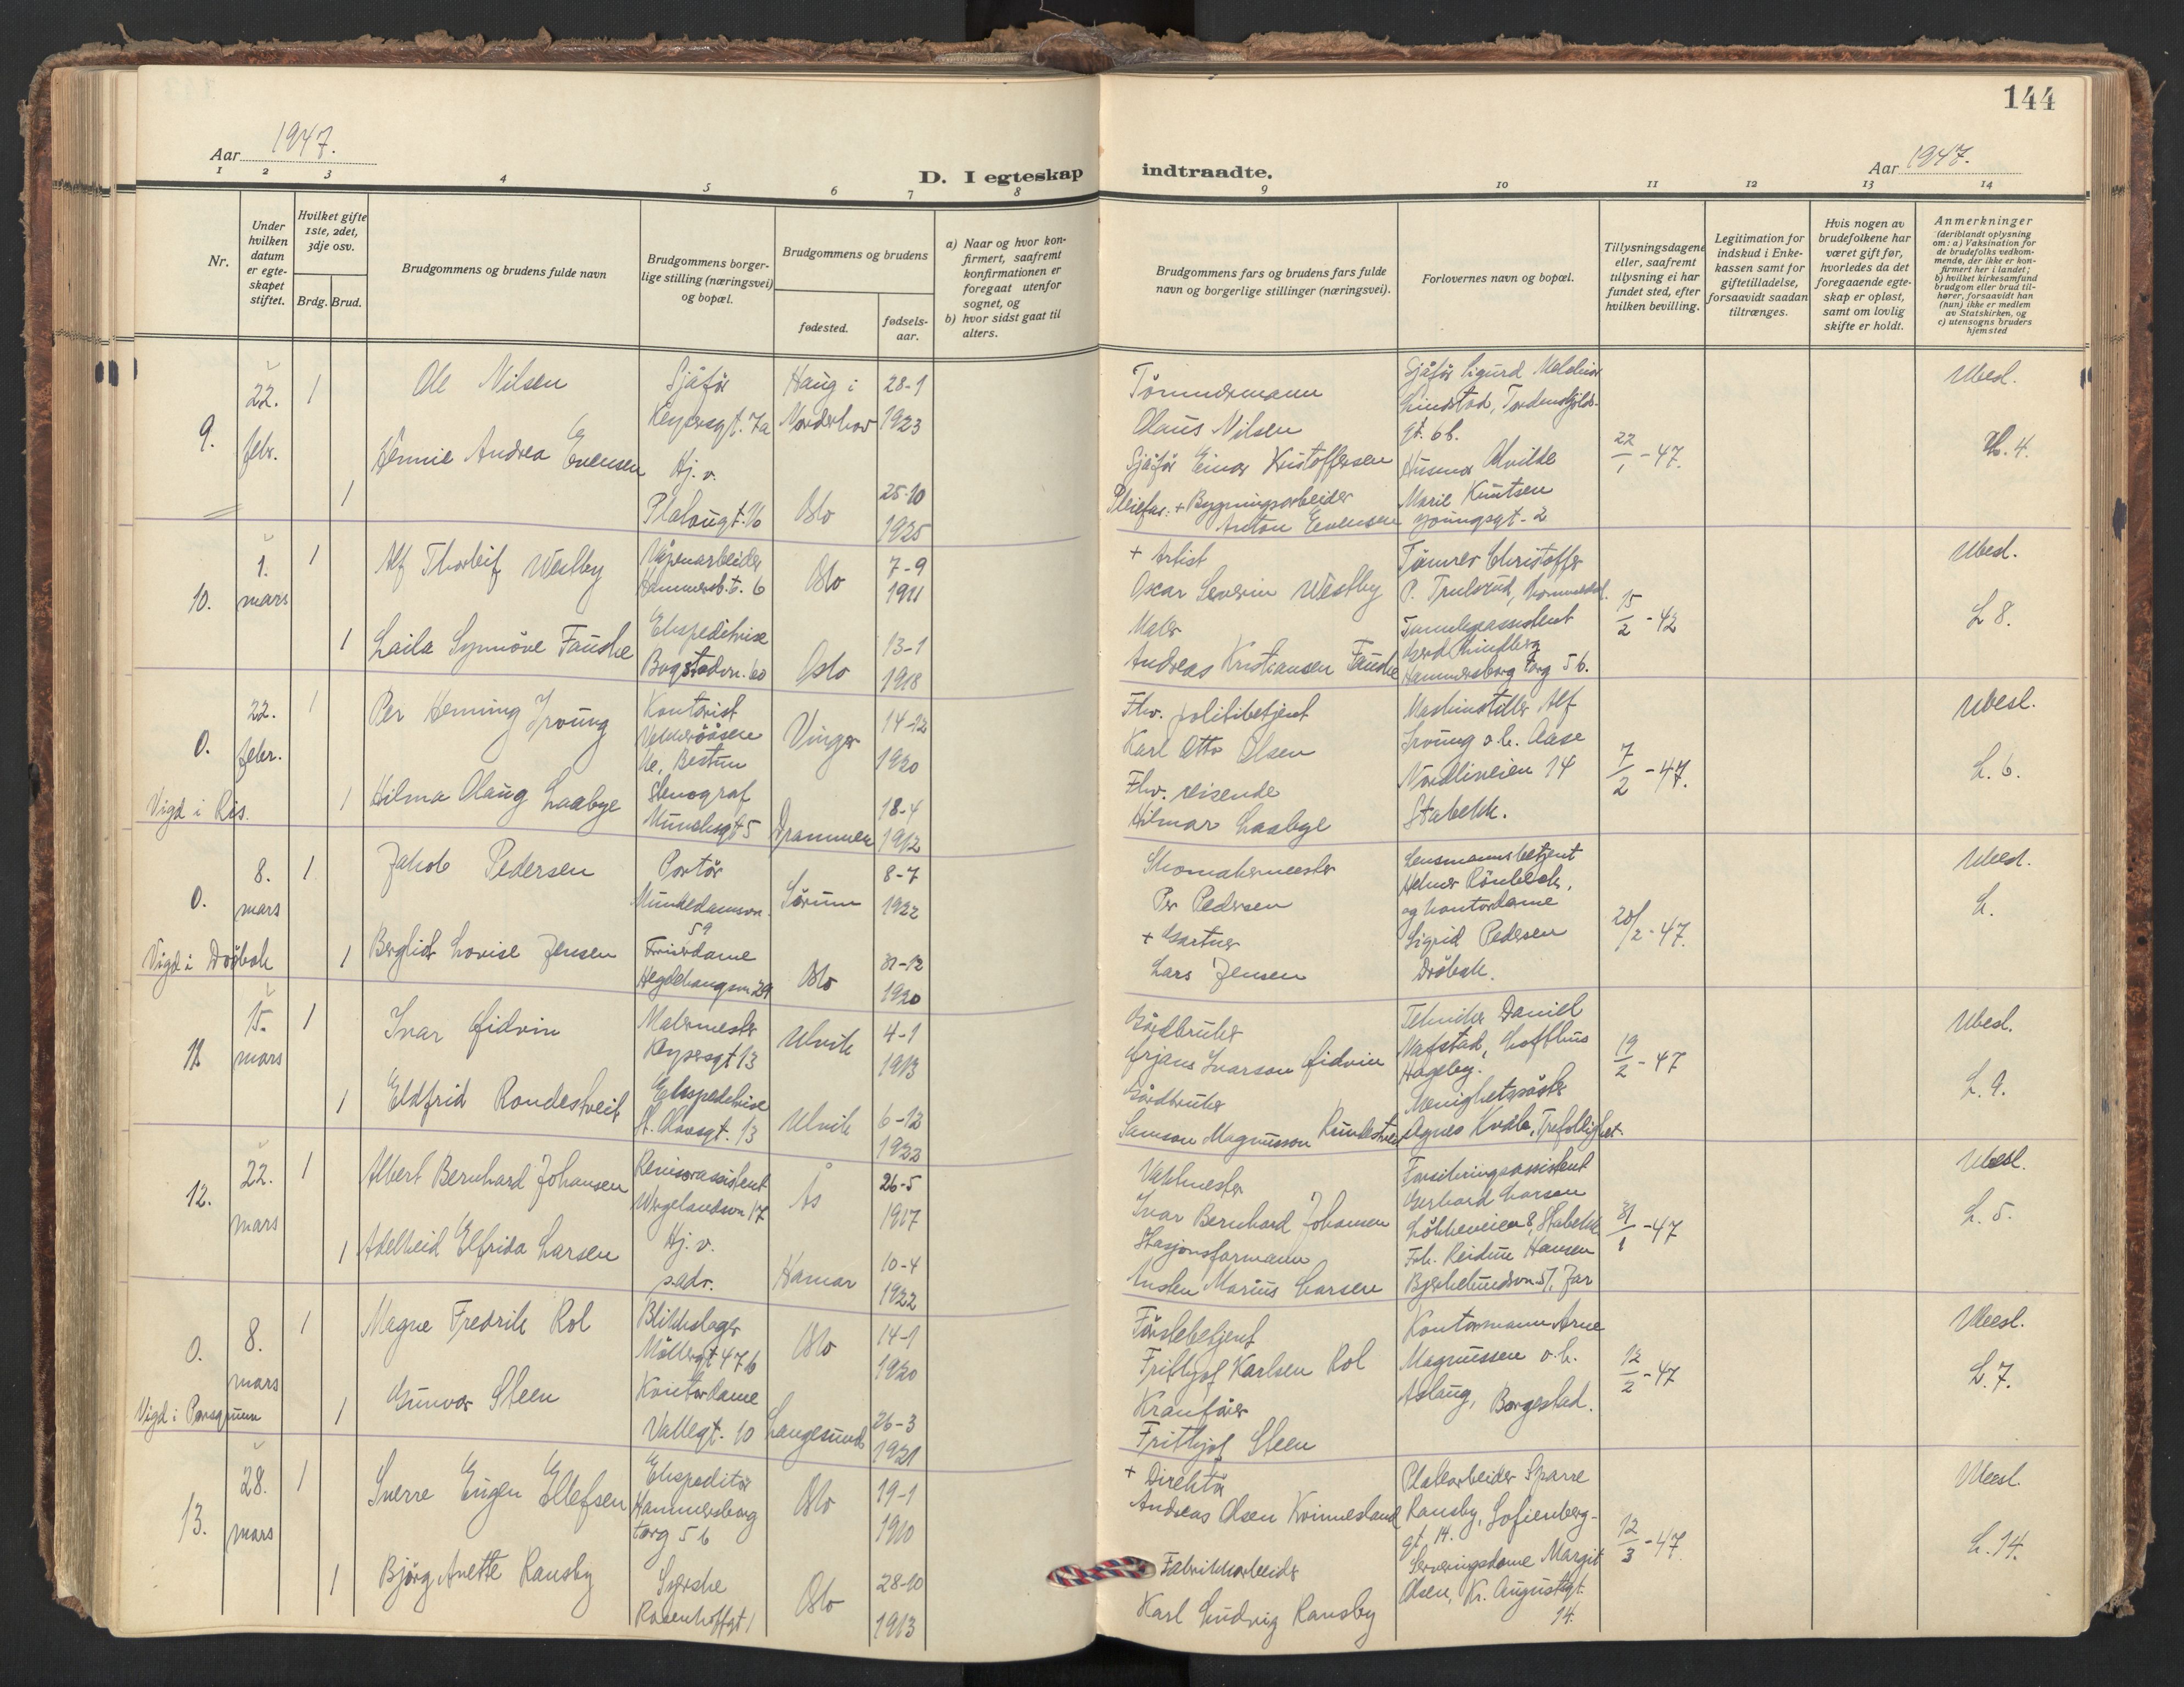 144
Aar 1947.
Aar 1947.
D. I egteskap indtraadte.
1 2 3 4 5 6 7 8 9 10 11 12 13 14
Nr.
Under hvilken datum er egteskapet stiftet.
Hvilket gifte 1ste, 2det, 3dje osv.
Brdg. Brud.
Brudgommens og brudens fulde navn
Brudgommens borgerlige stilling (næringsvei) og bopæl.
Brudgommens og brudens
fødested.
fødselsaar.
a) Naar og hvor konfirmert, saafremt konfirmationen er foregaat utenfor sognet, og
b) hvor sidst gaat til alters.
Brudgommens fars og brudens fars fulde navn og borgerlige stillinger (næringsvei).
Forlovernes navn og bopæl.
Tillysningsdagene eller, saafremt tillysning ei har fundet sted, efter hvilken bevilling.
Legitimation for indskud i Enkekassen samt for giftetilladelse, forsaavidt saadan tiltrænges.
Hvis nogen av brudefolkene har været gift før, hvorledes da det foregaaende egteskap er opløst, samt om lovlig skifte er holdt.
Anmerkninger (deriblandt oplysning om: a) Vaksination for de brudefolks vedkommende, der ikke er konfirmert her i landet; b) hvilket kirkesamfund brudgom eller brud tilhører, forsaavidt han (hun) ikke er medlem av Statskirken, og c) utensogns bruders hjemsted
9. 22. febr.
1 Ole Nilsen
Sjåfør
Keysersgt. 7a
Haug i Norderhov
28-1 1923
1 Hennie Andrea Evensen
Hj. v.
Oslo
25-10 1925
Tömmermann
Olaus Nilsen
Sjåfør Einar Kristoffersen
Pleiefar. + Bygningsarbeider
Anton Evensen
Sjåfør Sigurd Melchior
Lindstad, Tordenskjolds-
gt. 6b.
Husmor Alvilde
Marie Knutsen
Youngsgt. 2
22/1 - 47.
Ubesl.
L. 4.
10. 1. mars
1 Alf Thorleif Westby
Hammersb. t. 6
Oslo
7-9 1911
1 Laila Synnöve Fauske
Ekspeditrise
Bogstadvn. 60
Oslo
13-1 1918
+ Artist
Oscar Severin Westby
Maler
Andreas Kristiansen Fauske
Tömrer Christoffer
P. Trulsrud,
Gerd Lindberg
Hammersborg torg 5 b.
15/2 - 42
Ubesl.
L 8.
0. 22. febr.
Vigd i Ris.
1 Per Henning Iroung
Kontorist
Bestun
Vinger
14-12 1920
1 Hilma Olaug Laabye
Stenograf
Munchsgt 5
Drammen
18-4 1912
Fhv. politibetjent
Karl Otto Olsen
Fhv. reisende
Hilmar Laabye
Maskinstiller Alf
Iroung o. h. Aase
Nordliveien 14
Stabekk.
7/2 - 47.
Ubesl.
L. 6.
0. 8. mars
Vigd i Dröbak
1 Jakob Pedersen
Portör
Munkedamsvn. 59
Sörum
8-7 1922
1 Bergliot Lovise Jensen
Frisördame
Hegdehaugsvn 29
Oslo
31-12 1920
Skomakermester
Per Pedersen
+ Gartner
Lars Jensen
Lensmannsbetjent
Helmer Rönbeck,
og kontordame
Sigrid Pedersen
Dröbak.
20/2 - 47.
Ubesl.
L.
11. 15. mars
1 Ivar Lidvin
Malermester
Keysersgt 13
Ulvik
4-1 1913
1 Eldfrid Rondestveit
Ekspeditrise
St. Olavsgt. 13
Ulvik
6-12 1922
Gårdbruker
Örjans Ivarson Lidvin
Gårdbruker
Samson Magnusson Rundestveit
Tekniker Daniel
Mafstad, Lofthus
Hageby.
Menighetssöster
Agnes Kvåle, Trefoldighet.
19/2 - 47
Ubesl.
L. 9.
12. 22. mars
1 Albert Bernhard Johansen
Revisorassistent
Wergelandsvn 17
Ås
26-5 1917
1 Adelheid Elfrida Larsen
Hj. v.
s. adr.
Hamar
10-4 1922
Vaktmester
Ivar Bernhard Johansen
Stasjonsformann
Ansten Marius Larsen
Forsikringsassistent
Gerhard Larsen
Lökkeveien 8, Stabekk
Frk. Reidun Hansen
Bjerkelundsvn 57, Jar
31/1 - 47
Ubesl.
L. 5.
0. 8. mars
Vigd i Porsgrunn
1 Magne Fredrik Rol
Blikkslager
Möllergt 47 b
Oslo
14-1 1920
1 Gunvor Steen
Kontordame
Vallegt. 10
Langesund
26-3 1921
Förstebetjent
Frithjof Karlsen Rol
Kranförer
Frithjof Steen
Kontormann Arne
Magnussen o. h.
Aslaug, Borgestad.
12/2 - 47
Ubesl.
L. 7.
13. 28. mars
1 Sverre Eugen Ellefsen
Ekspeditör
Hammersborg
torg 5 b
Oslo
19-1 1910
1 Björg Anette Ransby
Syerske
Rosenhoffgt 1
Oslo
28-10 1913
+ Direktör
Andreas Olsen Kvinnesland
Fabrikkarbeider
Karl Ludvig Ransby
Platearbeider Sparre
Ransby, Sofienberg-
gt 14.
Serveringsdame Margit
Olsen, Kr. Augustsgt.
14.
12/3 - 47.
Ubesl.
L. 14.